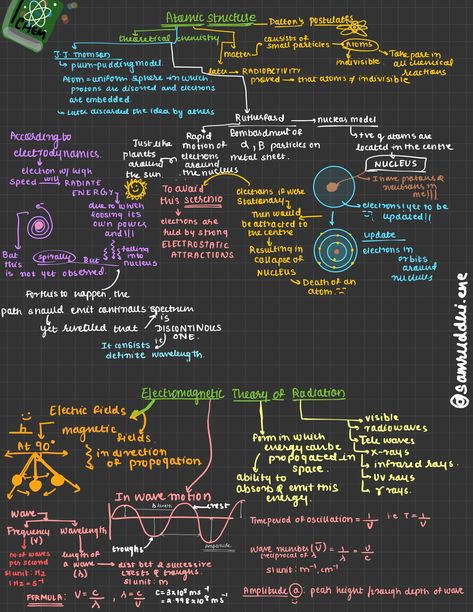 CHEM
Atomic structure
Dalton's postulates
theoretical chemistry
matter
consists of
small particles
Atoms
indivisible.
Take part in
all chemical
reactions
later → RADIOACTIVITY
proved → that atoms ≠ indivisible
J.J Thomson
plum-pudding model.
Atom = uniform sphere in which
protons are disolved and electrons
are embedded.
later discarded the idea by others
Rutherford
nuclear model
Rapid
motion of
electrons
around
the nucleus
Bombardment of
α, β particles on
metal sheet.
+ve q atoms are
located in the centre
NUCLEUS
I have protons &
neutrons in
me!!
electrons yet to be
updated!!
update
electrons in
orbits
around
nucleus
Just like
planets
around
the sun.
According to
electrodynamics.
electron w/ high
speed will RADIATE
ENERGY
due to which
loosing its
own power
and !!!
falling
into
nucleus
spirally
But
this
is not yet observed.
But
To avoid
this scenerio
electrons are
held by strong
ELECTROSTATIC
ATTRACTIONS
electrons if were
stationary,
then would
be attracted to
the centre
Resulting in
collapse of
NUCLEUS
Death of an
atom.
For this to happen, the
path should emit continous spectrum
yet revelled that
is
DISCONTINOUS
ONE.
It consists
definite wavelength.
@samruddhi.ene
Electromagnetic Theory of Radiation
Electric fields
magnetic
fields
At 90°
in direction
of propogation
Form in which
energy can be
propogated in
space.
ability to
absorb & emit this
energy.
visible
radiowaves
Tele waves
x-rays
infrared rays.
UV rays
γ rays.
In wave motion
crest
troughs
Amplitude
Wave
Frequency
(ν)
no of waves
per second
SI unit: Hz
1Hz = S⁻¹
Wavelength
length of
a wave
(λ)
dist bet 2 successive
crests & troughs
SI unit: m
FORMULA: ν = c/λ , λ = c/ν
c = 3×10⁸ ms⁻¹
= 2.998×10⁸ ms⁻¹
Time period of oscillation = 1/ν i.e T = 1/ν
wave number (ν̄) = 1/λ = ν/c
reciprocal of λ
SI unit: m⁻¹, cm⁻¹
Amplitude (a): peak height/trough depth of wave